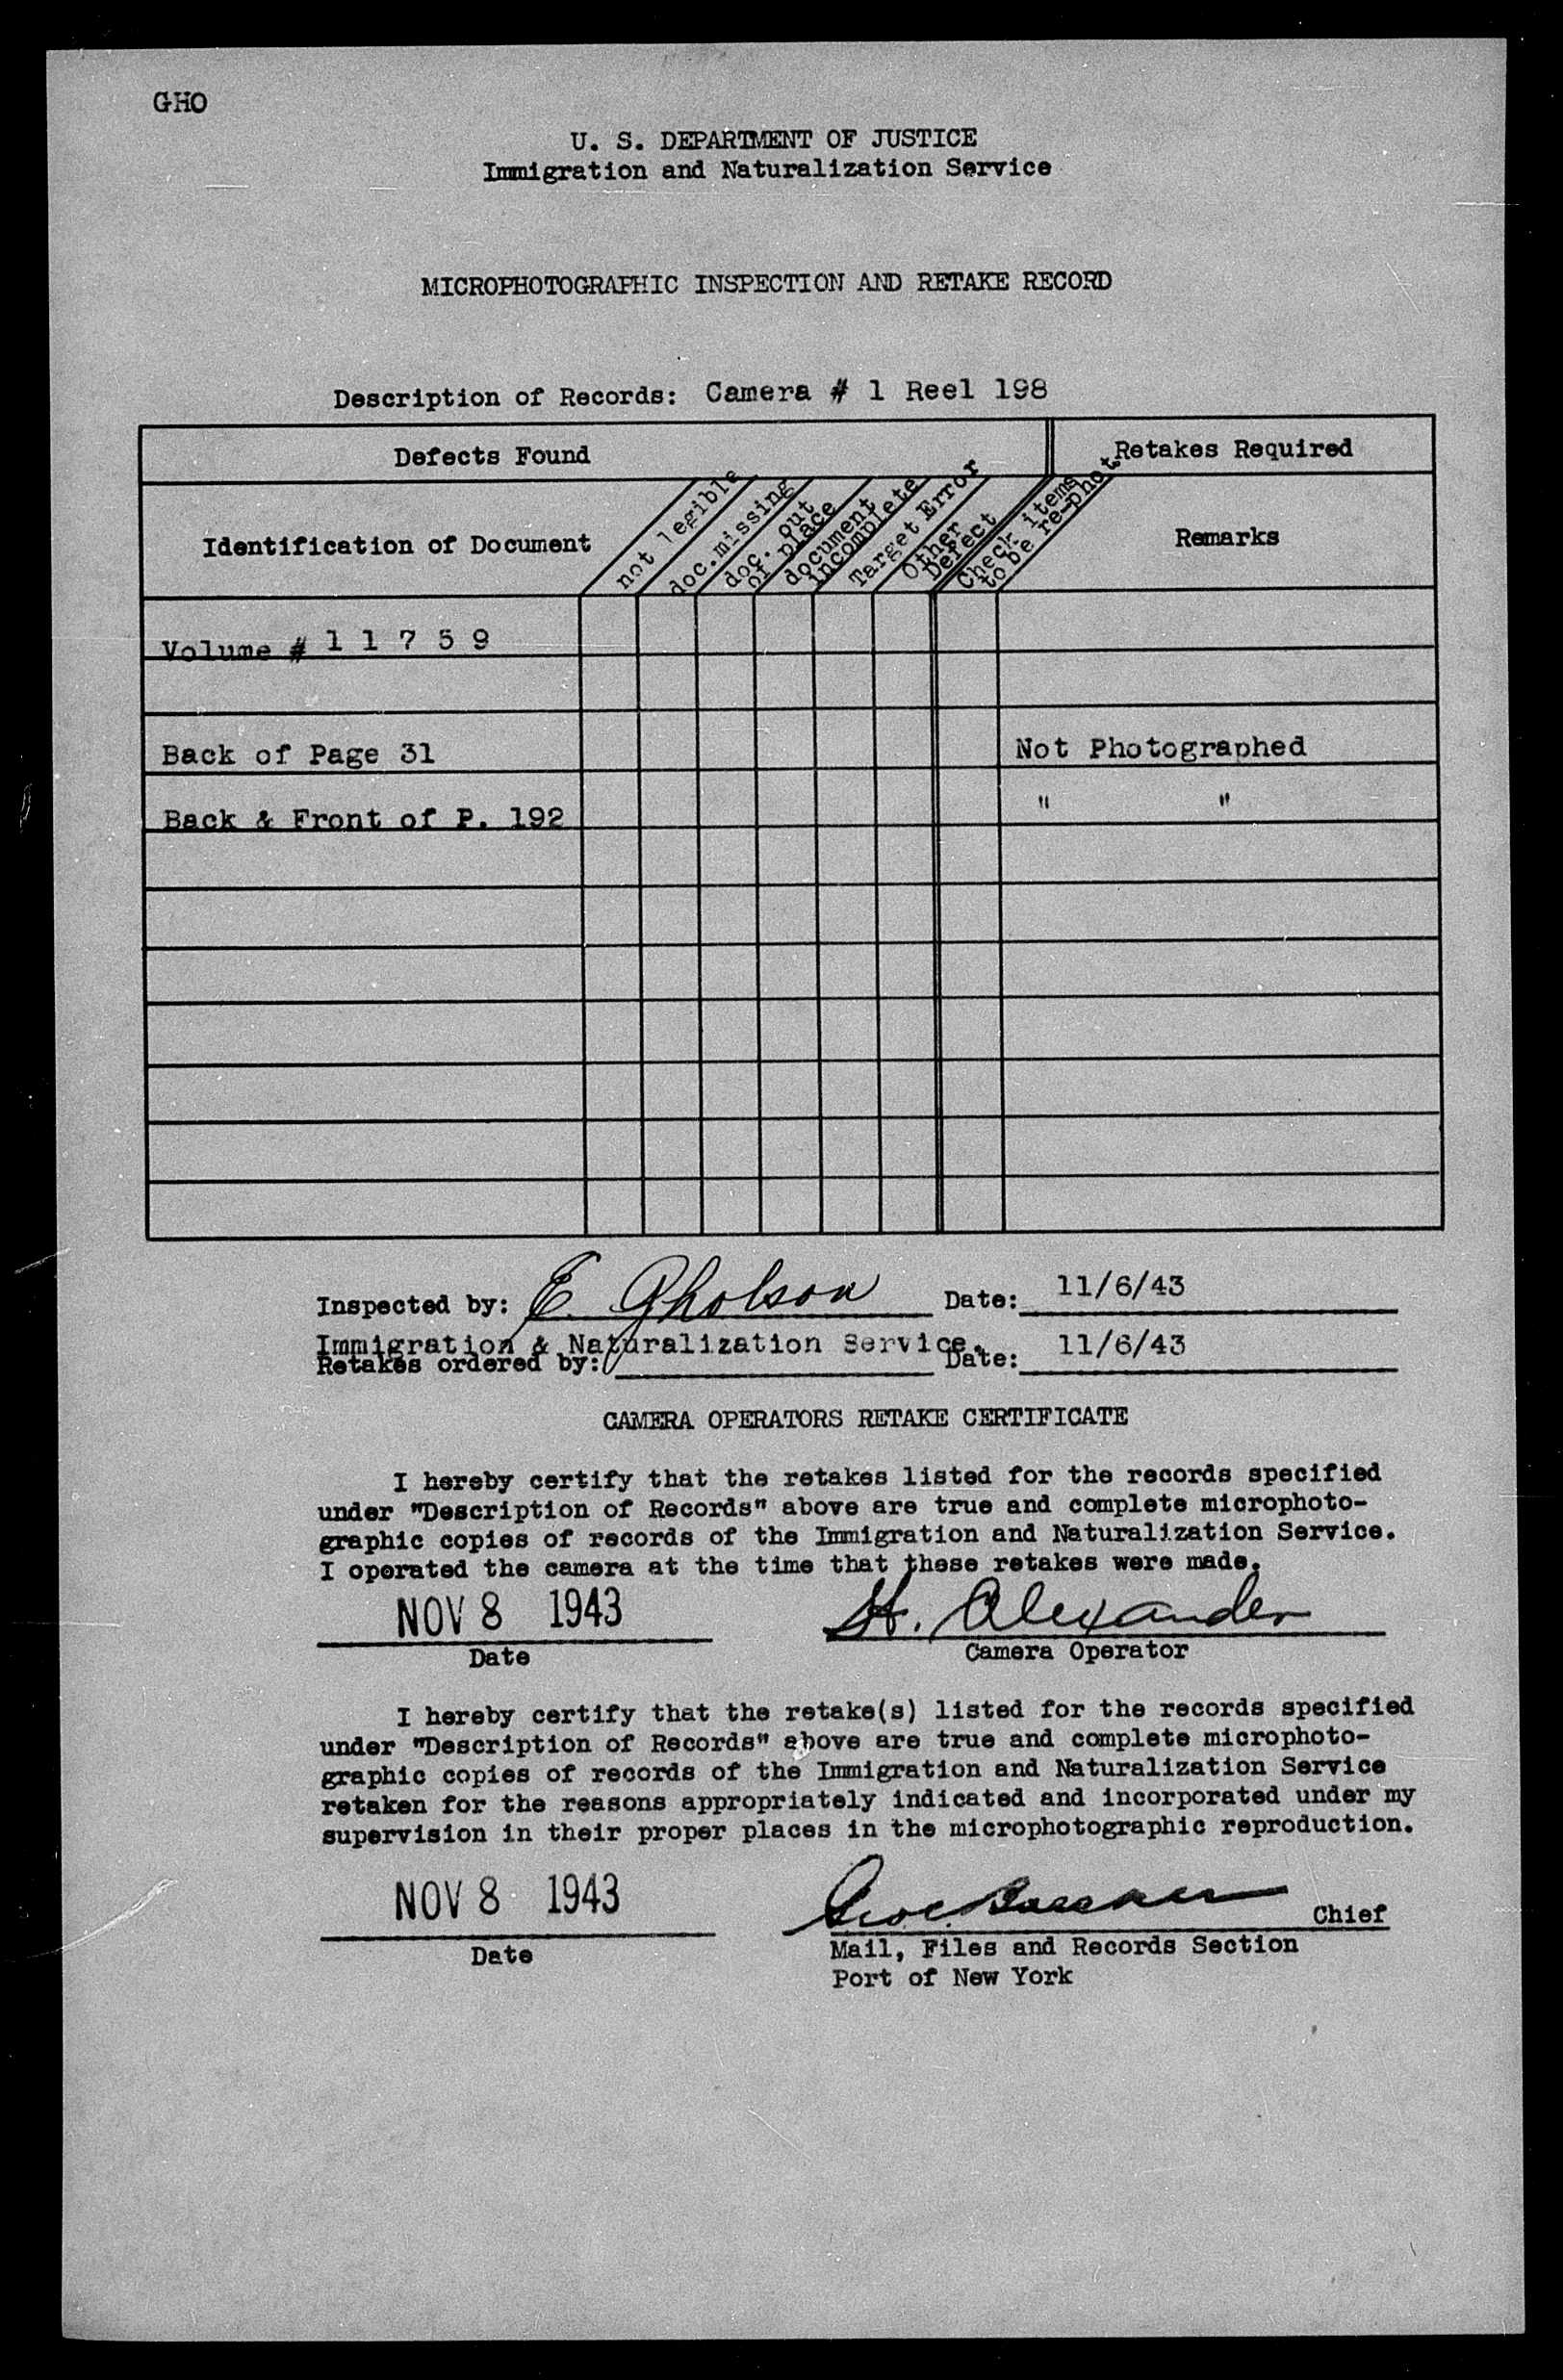 GHO
U. S. DEPARTMENT OF JUSTICE
Immigration and Naturalization Service
MICROPHOTOGRAPHIC INSPECTION AND RETAKE RECORD
Description of Records: Camera # 1 Reel 198
Defects Found
Retakes Required
Identification of Document
not legible
doc.missing
doc. out
of place
document
incomplete
Target Error
Other
Defect
Check items
to be re-phot
Remarks
Volume # 1 1 7 5 9
Back of Page 31 Not Photographed
Back & Front of P. 192 " "
Inspected by: E. Gholson Date: 11/6/43
Immigration & Naturalization Service.
Retakes ordered by: Date: 11/6/43
CAMERA OPERATORS RETAKE CERTIFICATE
I hereby certify that the retakes listed for the records specified
under "Description of Records" above are true and complete microphoto-
graphic copies of records of the Immigration and Naturalization Service.
I operated the camera at the time that these retakes were made.
NOV 8 1943 H. Alexander
Date Camera Operator
I hereby certify that the retake(s) listed for the records specified
under "Description of Records" above are true and complete microphoto-
graphic copies of records of the Immigration and Naturalization Service
retaken for the reasons appropriately indicated and incorporated under my
supervision in their proper places in the microphotographic reproduction.
NOV 8 1943 Chief
Date Mail, Files and Records Section
Port of New York